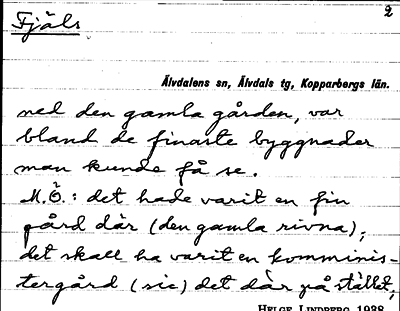 2
Fjäls
Älvdalens sn, Älvdals tg, Kopparbergs län.
ned den gamla gården, var
bland de finaste byggnader
man kunde få se.
M.Ö.: det hade varit en fin
gård där (den gamla rivna);
det skall ha varit en komminis-
tergård (sic) det där på stället;
HELGE LINDBERG 1938